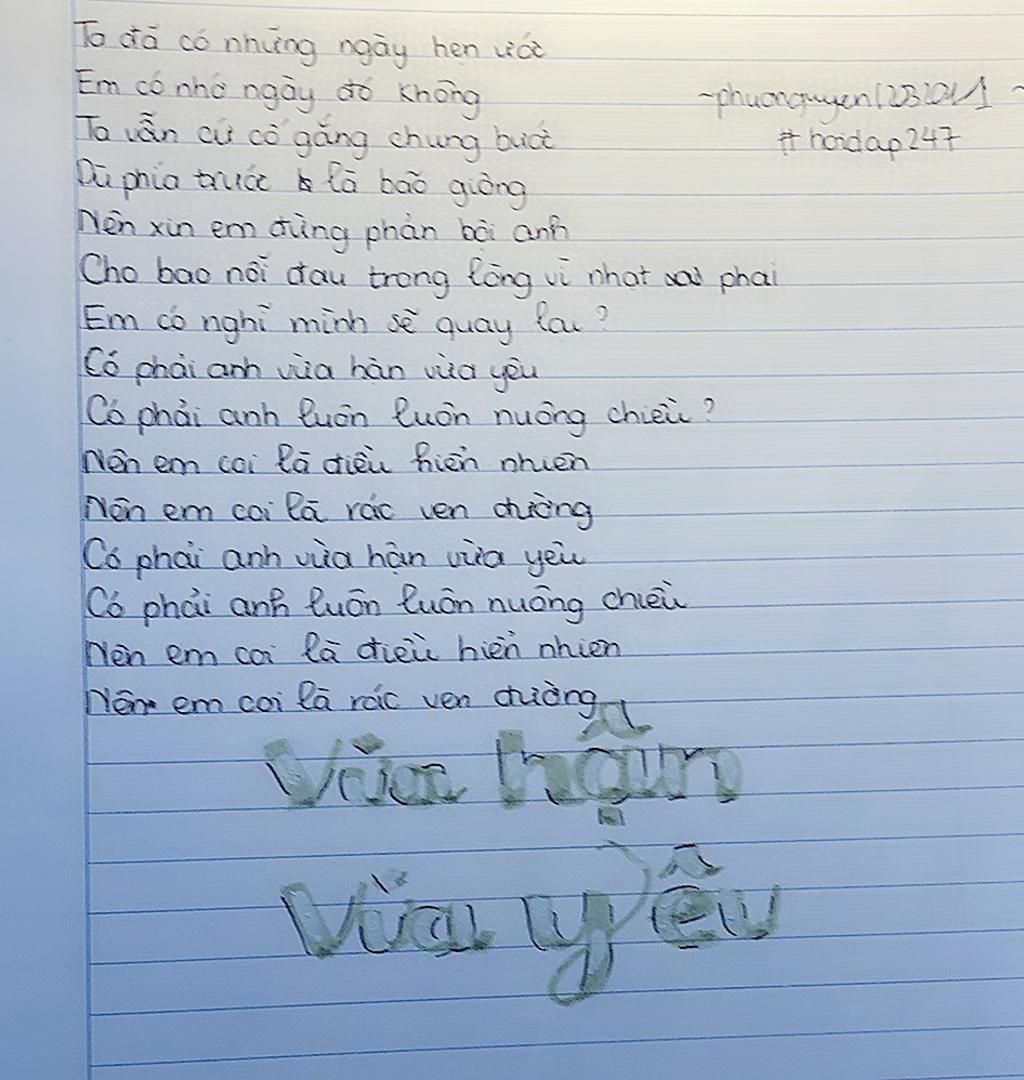 Ta đã có những ngày hẹn ước
Em có nhớ ngày đó không
~phuonguyen12032011~
Ta vẫn cứ cố gắng chung bước
#hoidap247
Dù phía trước là bão giông
Nên xin em đừng phản bội anh
Cho bao nỗi đau trong lòng vì nhạt phai
Em có nghĩ mình sẽ quay lại?
Có phải anh vừa hận vừa yêu
Có phải anh luôn luôn nuông chiều?
Nên em coi là điều hiển nhiên
Nên em coi là rác ven đường
Có phải anh vừa hận vừa yêu
Có phải anh luôn luôn nuông chiều
Nên em coi là điều hiển nhiên
Nên em coi là rác ven đường
Vừa hận
Vừa yêu